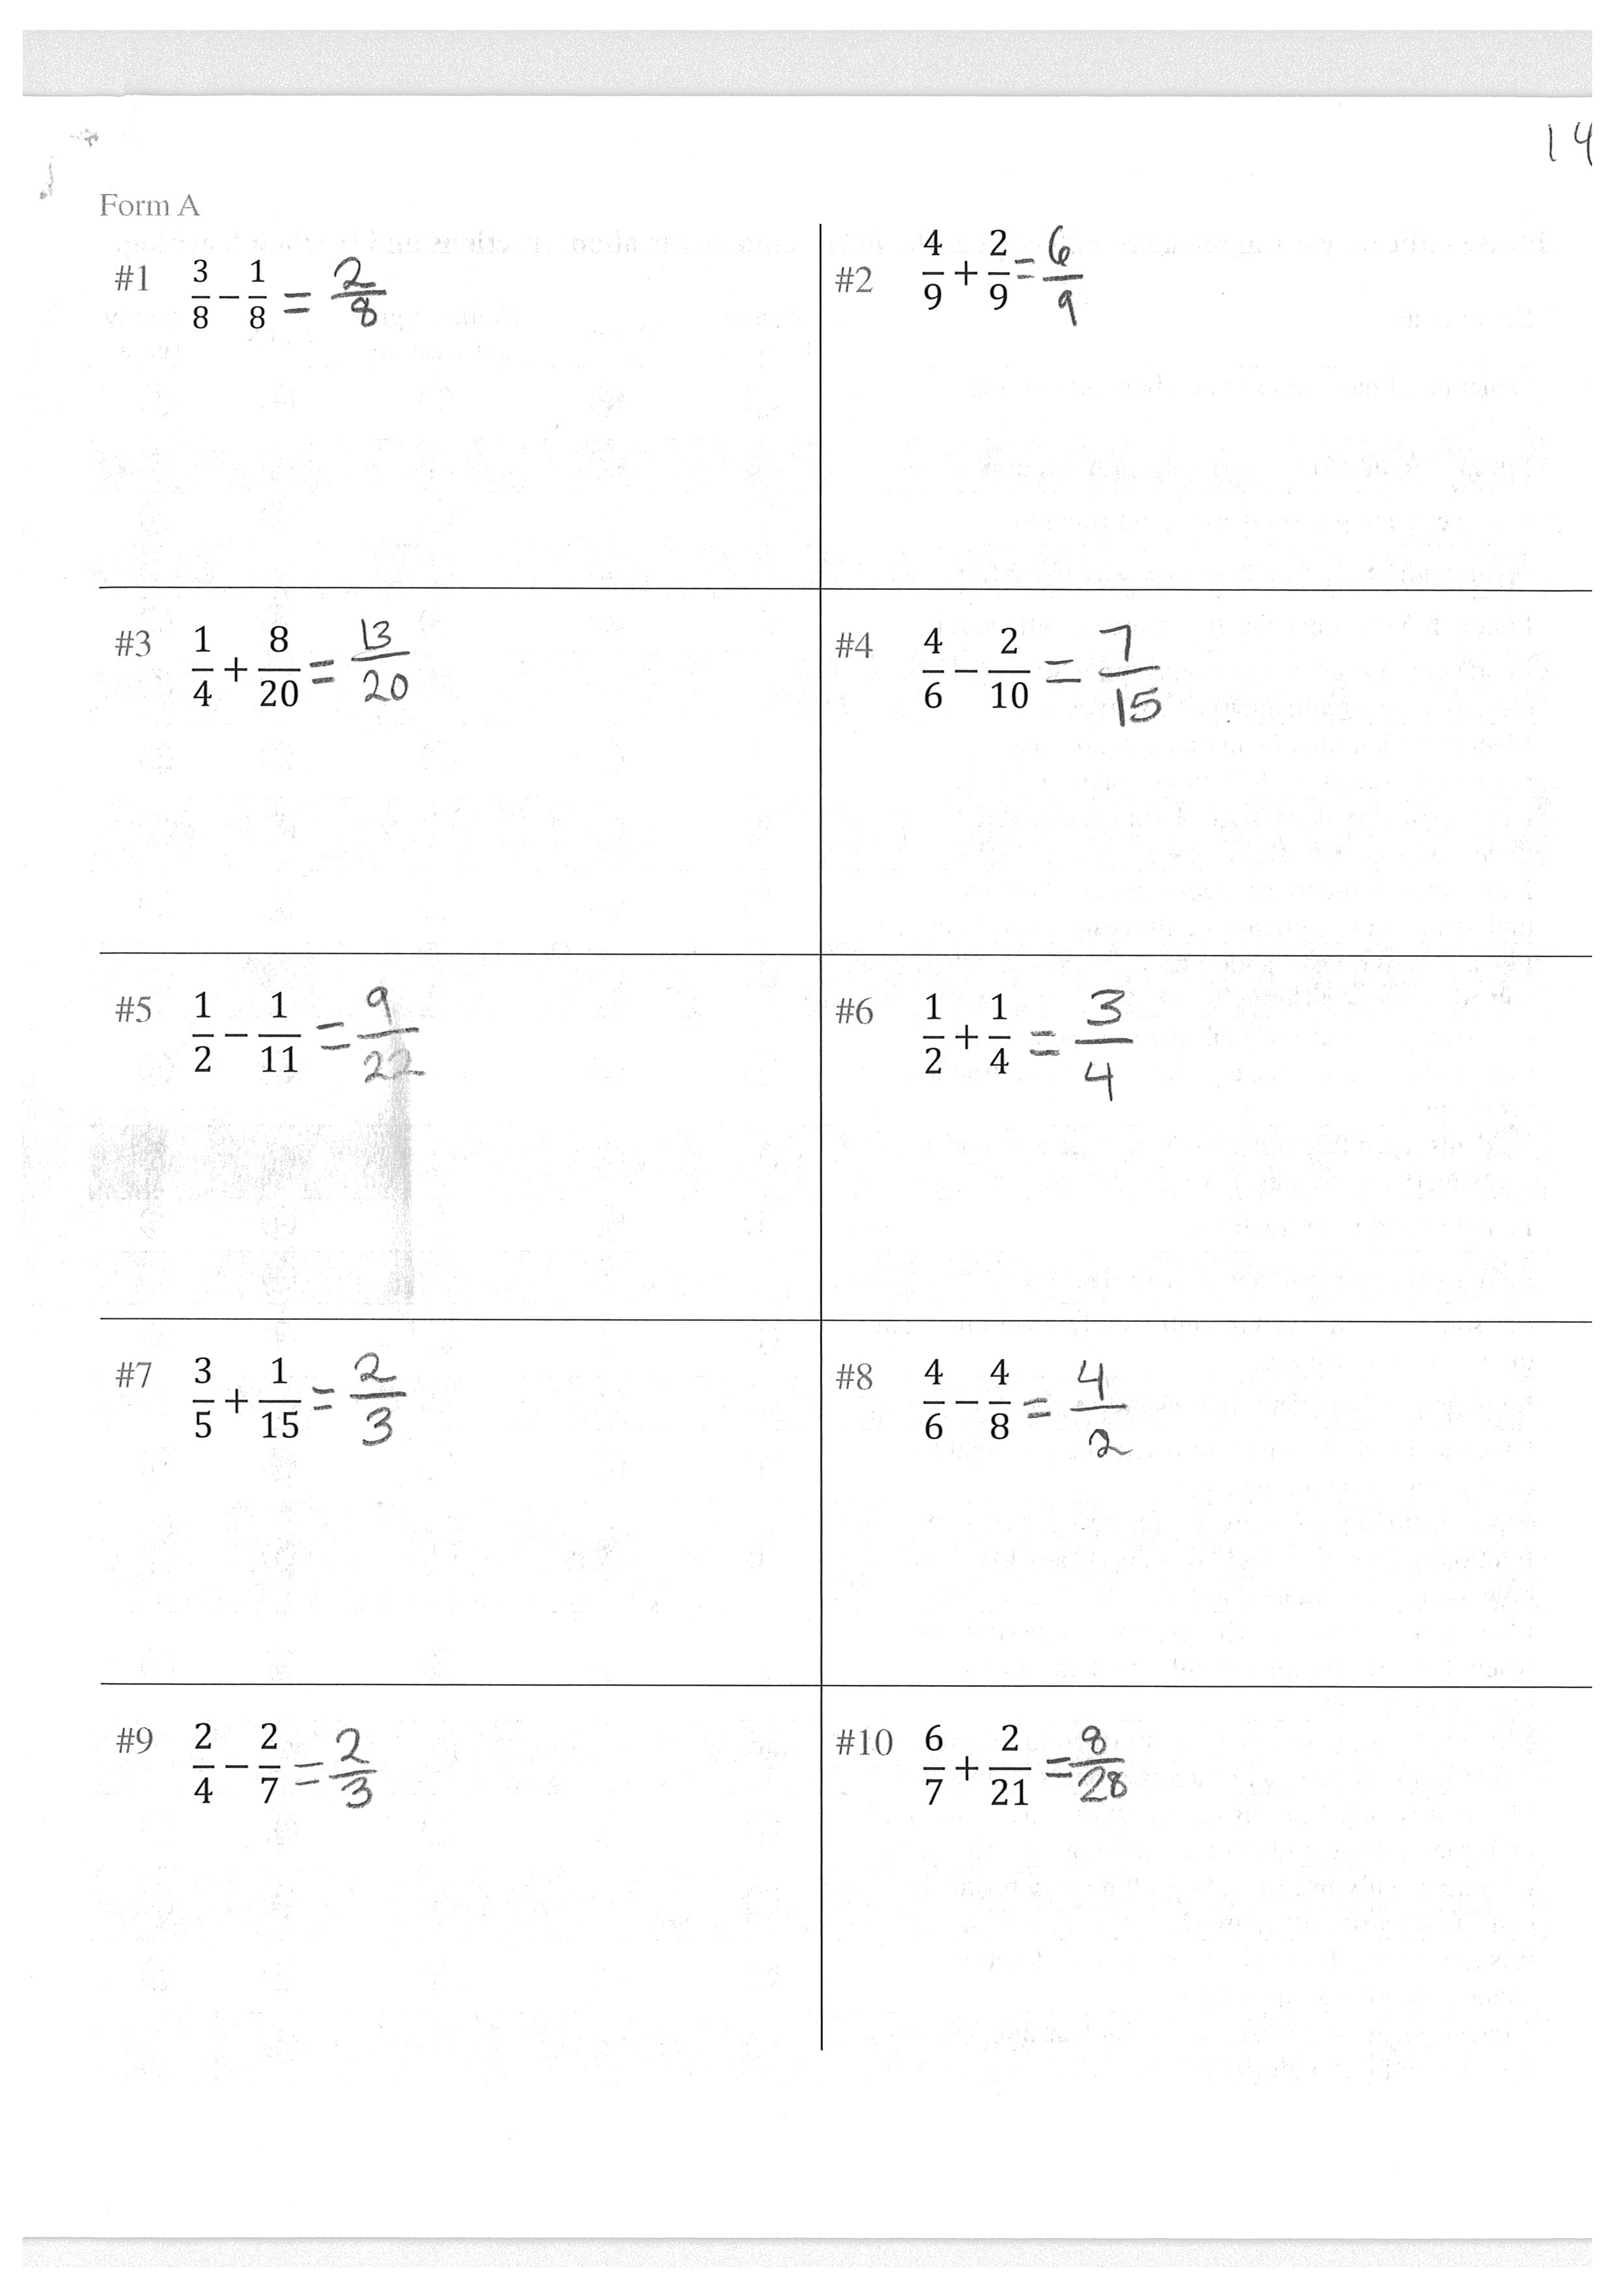 14
Form A
#1 3/8 − 1/8 = 2/8
#2 4/9 + 2/9 = 6/9
#3 1/4 + 8/20 = 13/20
#4 4/6 − 2/10 = 7/15
#5 1/2 − 1/11 = 9/22
#6 1/2 + 1/4 = 3/4
#7 3/5 + 1/15 = 2/3
#8 4/6 − 4/8 = 4/2
#9 2/4 − 2/7 = 2/3
#10 6/7 + 2/21 = 8/28